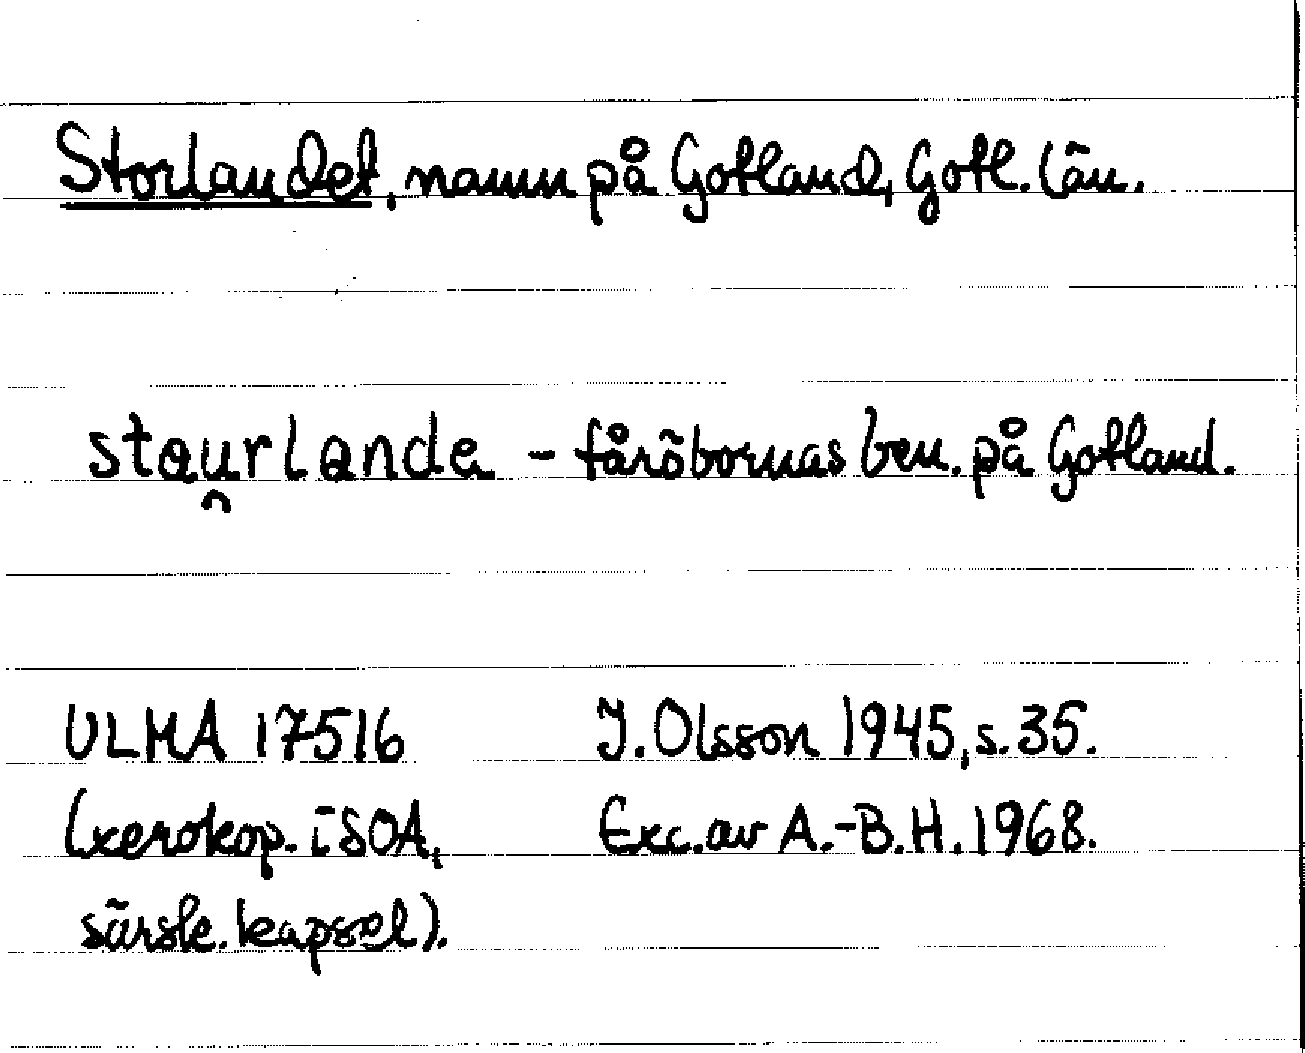 Storlandet, namn på Gotland, Gotl. län.
stau̯rlandə – fåröbornas ben. på Gotland.
ULMA 17516
(xerokop. i SOA,
särsk. kapsel).
I. Olsson 1945, s. 35.
Exc. av A.-B.H. 1968.